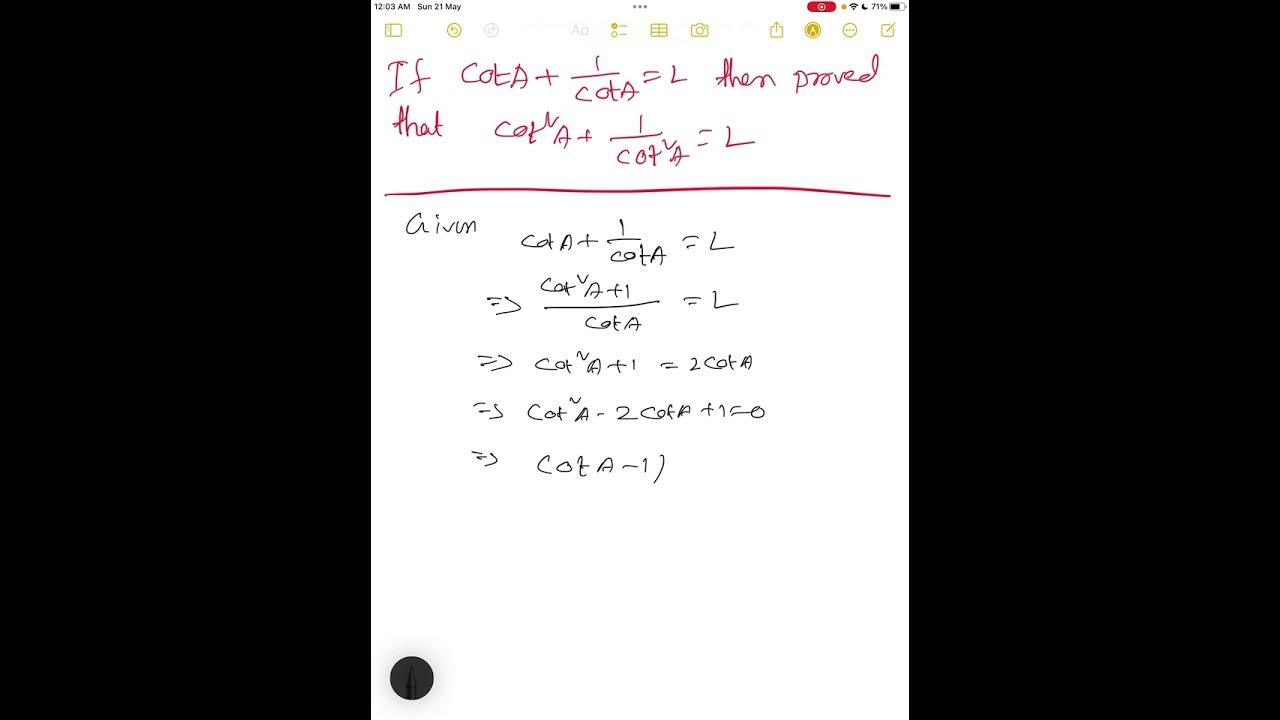 12:03 AM Sun 21 May 71%
Aa
If cotA + 1/cotA = 2 then proved
that cot²A + 1/cot²A = 2
Given cotA + 1/cotA = 2
=> cot²A+1/cotA = 2
=> cot²A+1 = 2cotA
=> cot²A - 2cotA +1=0
=> cotA-1)